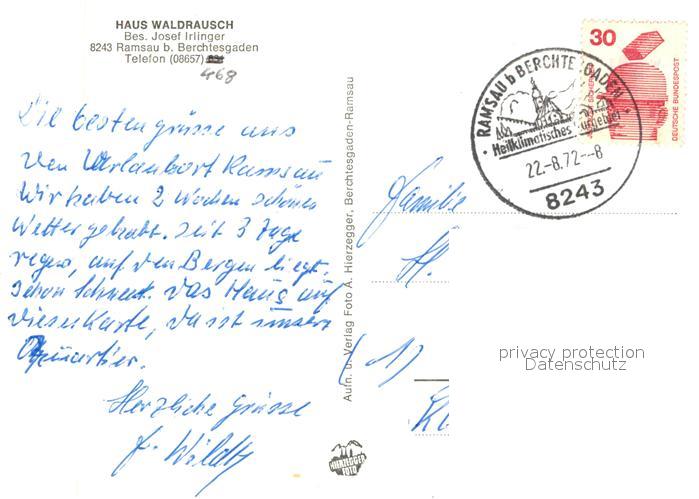 HAUS WALDRAUSCH
Bes. Josef Irlinger
8243 Ramsau b. Berchtesgaden
Telefon (08657)
468
Die besten grüsse aus
den Uhrlaubort Ramsau
Wir haben 2 Wochen schönes
Wetter gehabt. seit 3 Tage
regen, auf den Bergen liegt.
schon Schnee. Das Haus auf
dieser Karte, da ist unser
Quartier.
Herzliche grüsse
Aufn. u. Verlag Foto A. Hierzegger, Berchtesgaden-Ramsau
HIERZEGGER
FOTO
30
DEUTSCHE BUNDESPOST
RAMSAU b BERCHTESGADEN
Heilklimatisches
22.-8.72--8
8243
Familie
H.
(1)
privacy protection
Datenschutz